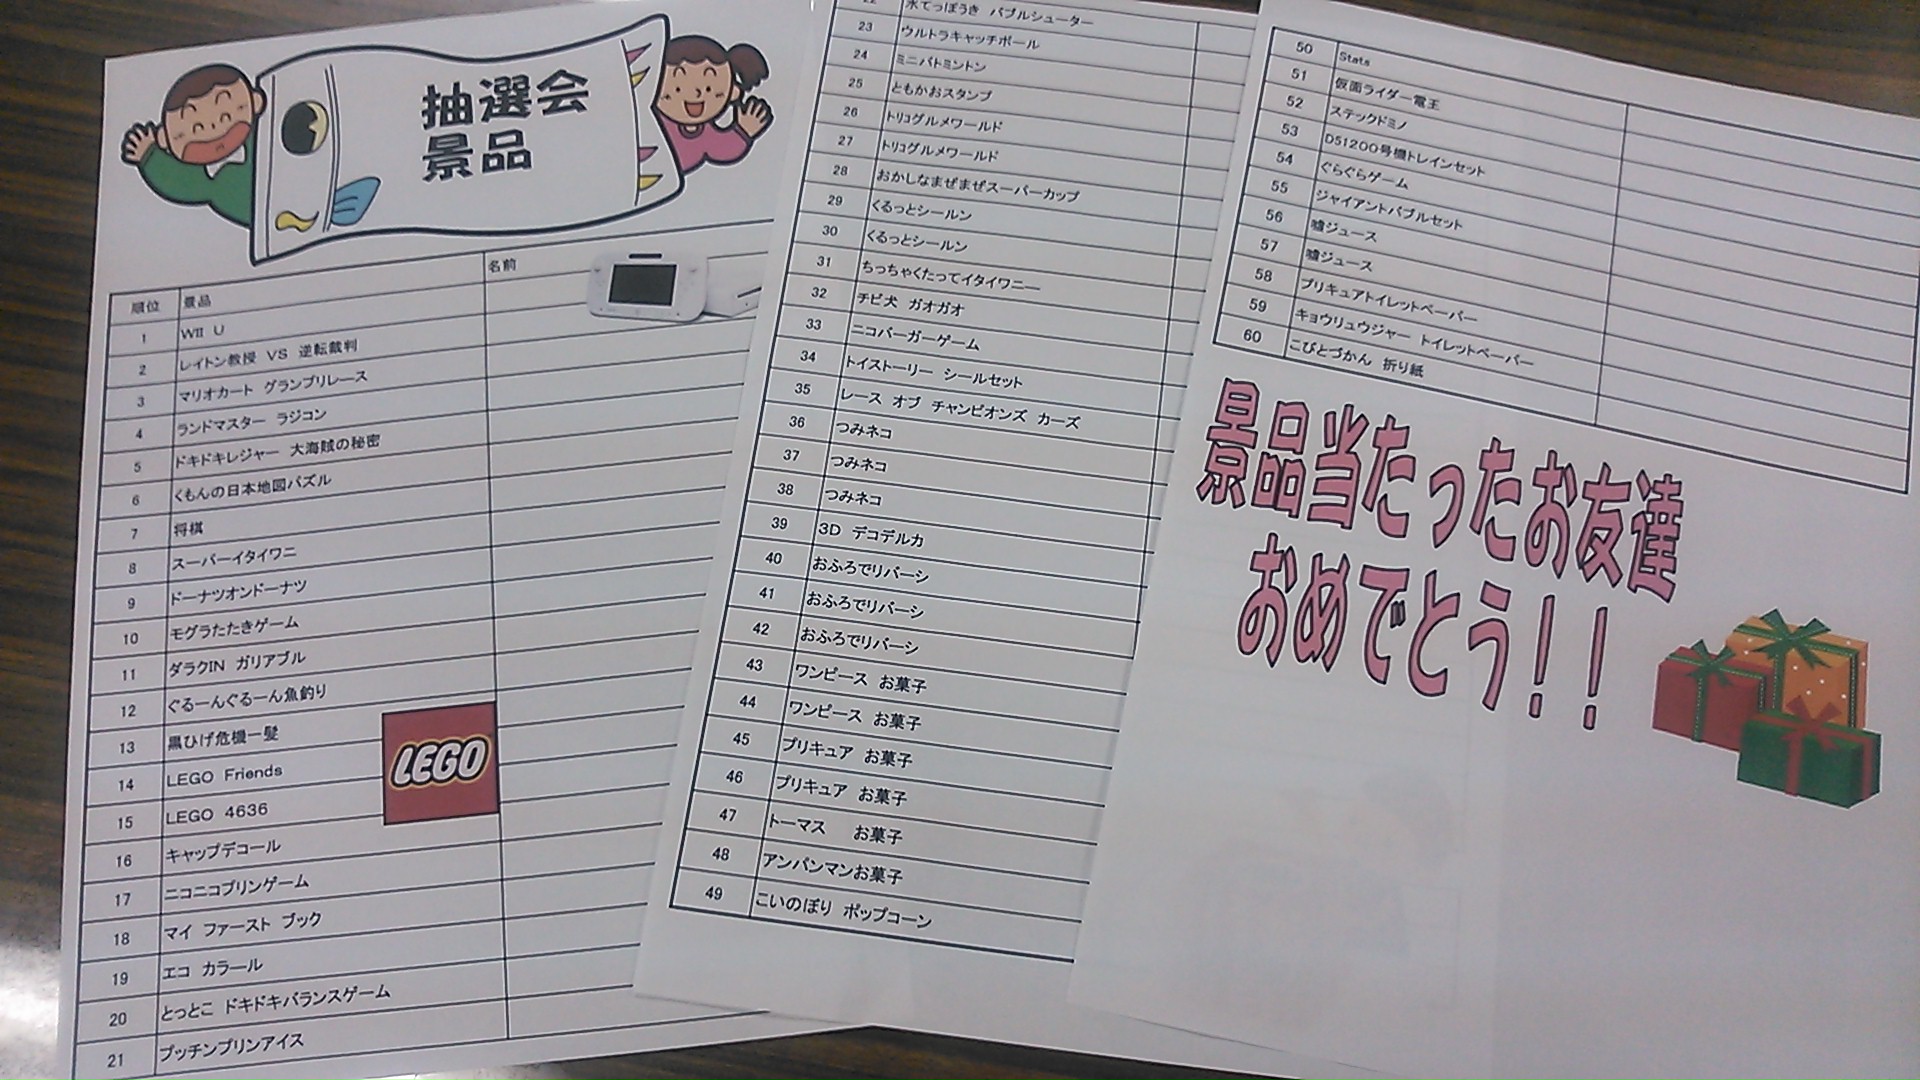 抽選会
景品
順位 景品 名前
1 WII U
2 レイトン教授 VS 逆転裁判
3 マリオカート グランプリレース
4 ランドマスター ラジコン
5 ドキドキレジャー 大海賊の秘密
6 くもんの日本地図パズル
7 将棋
8 スーパーイタイワニ
9 ドーナツオンドーナツ
10 モグラたたきゲーム
11 ダラクIN ガリアブル
12 ぐるーんぐるーん魚釣り
13 黒ひげ危機一髪
14 LEGO Friends
15 LEGO 4636
LEGO
16 キャップデコール
17 ニコニコプリンゲーム
18 マイ ファースト ブック
19 エコ カラール
20 とっとこ ドキドキバランスゲーム
21 プッチンプリンアイス
22 水てっぽうき バブルシューター
23 ウルトラキャッチボール
24 ミニバトミントン
25 ともかおスタンプ
26 トリコグルメワールド
27 トリコグルメワールド
28 おかしなまぜまぜスーパーカップ
29 くるっとシールン
30 くるっとシールン
31 ちっちゃくたってイタイワニー
32 チビ犬 ガオガオ
33 ニコバーガーゲーム
34 トイストーリー シールセット
35 レース オブ チャンピオンズ カーズ
36 つみネコ
37 つみネコ
38 つみネコ
39 3D デコデルカ
40 おふろでリバーシ
41 おふろでリバーシ
42 おふろでリバーシ
43 ワンピース お菓子
44 ワンピース お菓子
45 プリキュア お菓子
46 プリキュア お菓子
47 トーマス お菓子
48 アンパンマンお菓子
49 こいのぼり ポップコーン
50 Stats
51 仮面ライダー電王
52 ステックドミノ
53 D51200号機トレインセット
54 ぐらぐらゲーム
55 ジャイアントバブルセット
56 嘘ジュース
57 嘘ジュース
58 プリキュアトイレットペーパー
59 キョウリュウジャー トイレットペーパー
60 こびとづかん 折り紙
景品当たったお友達
おめでとう！！